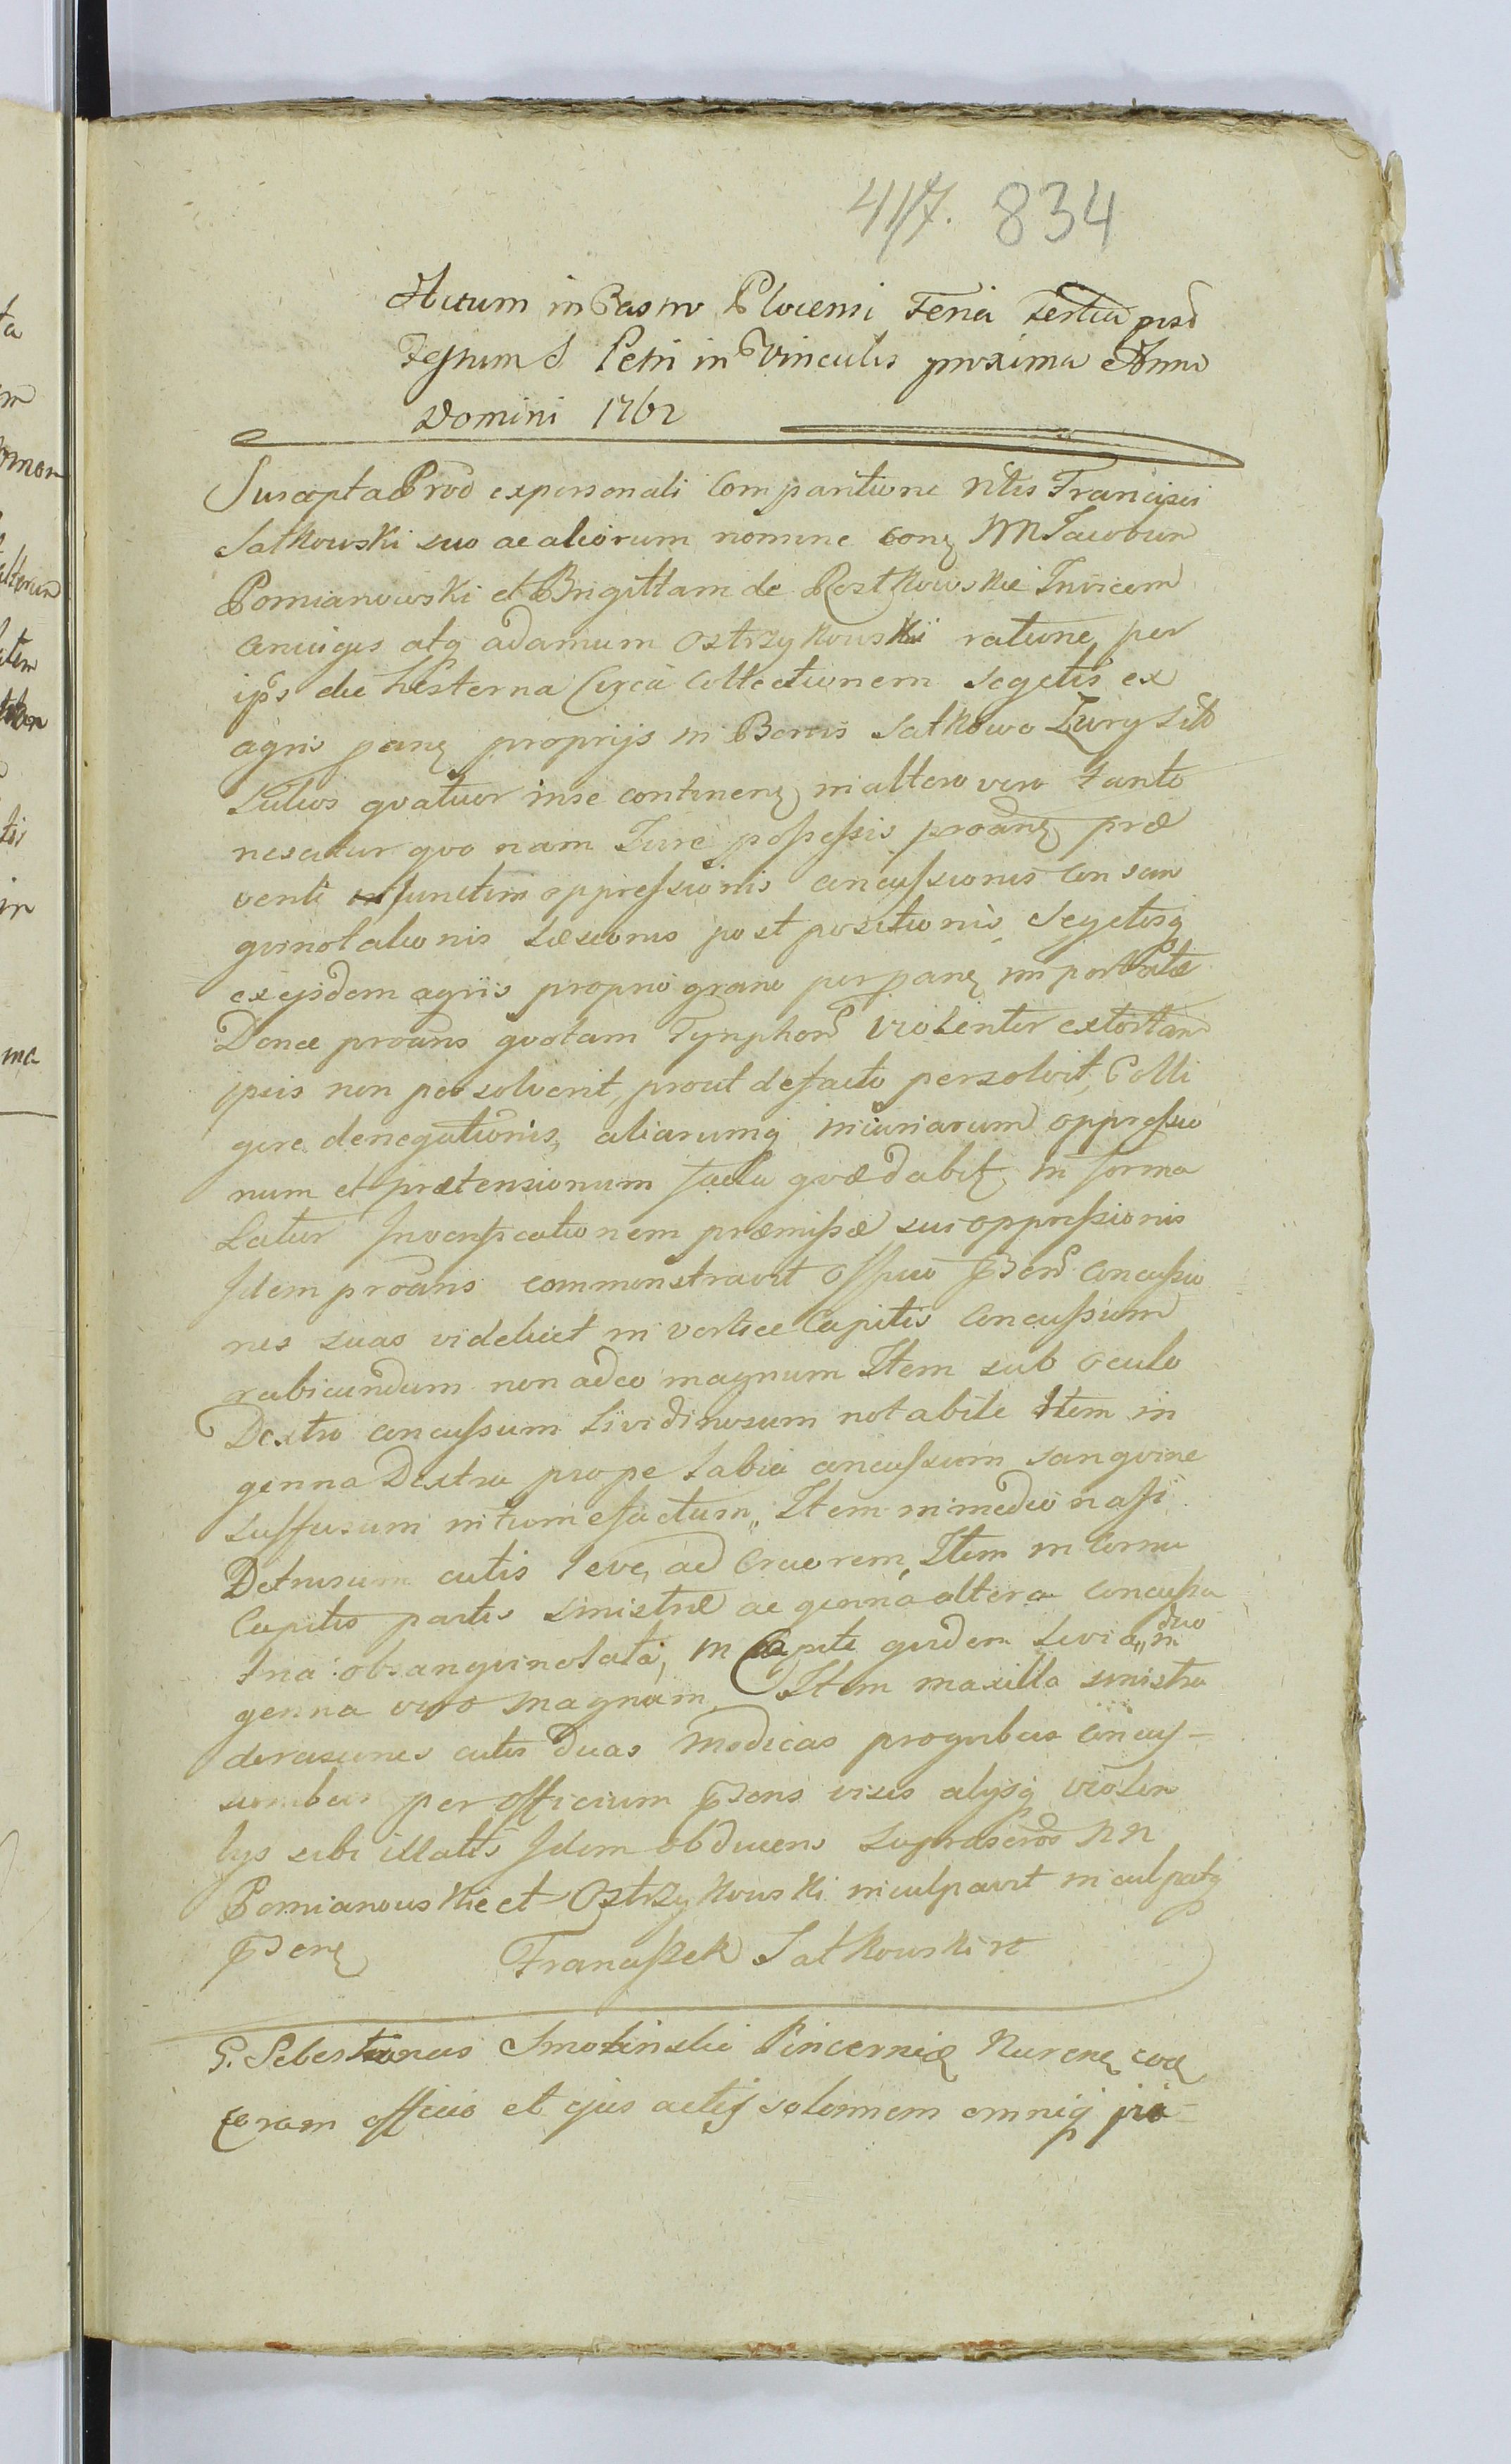 417. 834
Actum in Castro Plocensi Feria tertia post
Festum S. Petri in Vinculis proxima Anno
Domini 1762
Suscepta Prod ex personali Comparitione Nlis Francisci
Satkowski suo ac aliorum nomine conq MM Jacobum
Pomianowski et Brigittam de Rostkowskie Invicem
Coniuges atq adamum Ostrzykowski ratione per
ipos die hesterna Circa Collectionem Segetis ex
agris panq proprijs in Bonis Satkowo Zury sito
Sulcos quatuor in se continenq in altero vero tanto
nescitur quo nam Jure possessis proãnq præ
venti oppressionis concussionis Consan
guinolationis Læsionis post positionis Segetisq
ex ejsdem agris proprio grano per panq importatæ
Donec proãns quotam Tynphon violenter extortam
ipsis non persolverit, prout de facto persolvit, Colli
gere denegationis, aliarumq iniuriarum oppressio
num et prætensionum facta quæ dabit in forma
Latius In verificationem præmissæ sui oppressionis
Idem proãns commonstravit Officio psen Concussio
nes suas videlicet in vertice Capitis Concussum
rubicundum non adeo magnum Item sub oculo
Dextro concussum Lividinosum notabile Item in
genna Dextra prope labia concussum sanguine
suffusum intumefactum, Item in medio nasi
Detrusum cutis leve, ad Cruorem, Item in Cornu
Capitis partis sinistræ ac genna altera Concussa
tria obsanguinolata, in Capite quidem Levia duo in
genna vero magnum, Item maxilla sinistra
derasiones cutis duas modicas pro quibus concus-
sionibus per officium psens visis alijsq violen
tijs sibi illatis Idem obducens suprascros NN
Pomianowskie et Ostrzykowski inculpavit inculpatq
psenq Franciszek Satkowski
G. Sebestianus Smolinski Pincernia Nurenq coq
coram officio et ejus actis solennem omniq